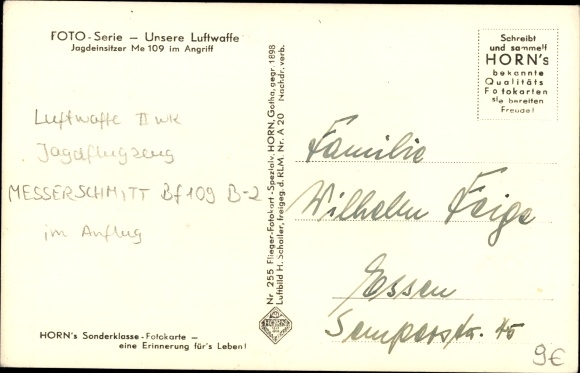 FOTO-Serie – Unsere Luftwaffe
Jagdeinsitzer Me 109 im Angriff
Luftwaffe II WK
Jagdflugzeug
MESSERSCHMITT Bf 109 B-2
im Anflug
HORN's Sonderklasse-Fotokarte –
eine Erinnerung für's Leben!
Nr 255 Flieger-Fotokart.-Spezialv. HORN, Gotha, gegr. 1898
Luftbild H. Schaller, freigeg. d. RLM. Nr. A 20 Nachdr. verb.
HORN
Schreibt
und sammelt
HORN's
bekannte
Qualitäts
Fotokarten
sie bereiten
Freude!
Familie
Wilhelm Feige
Essen
Semperstr. 45
9€